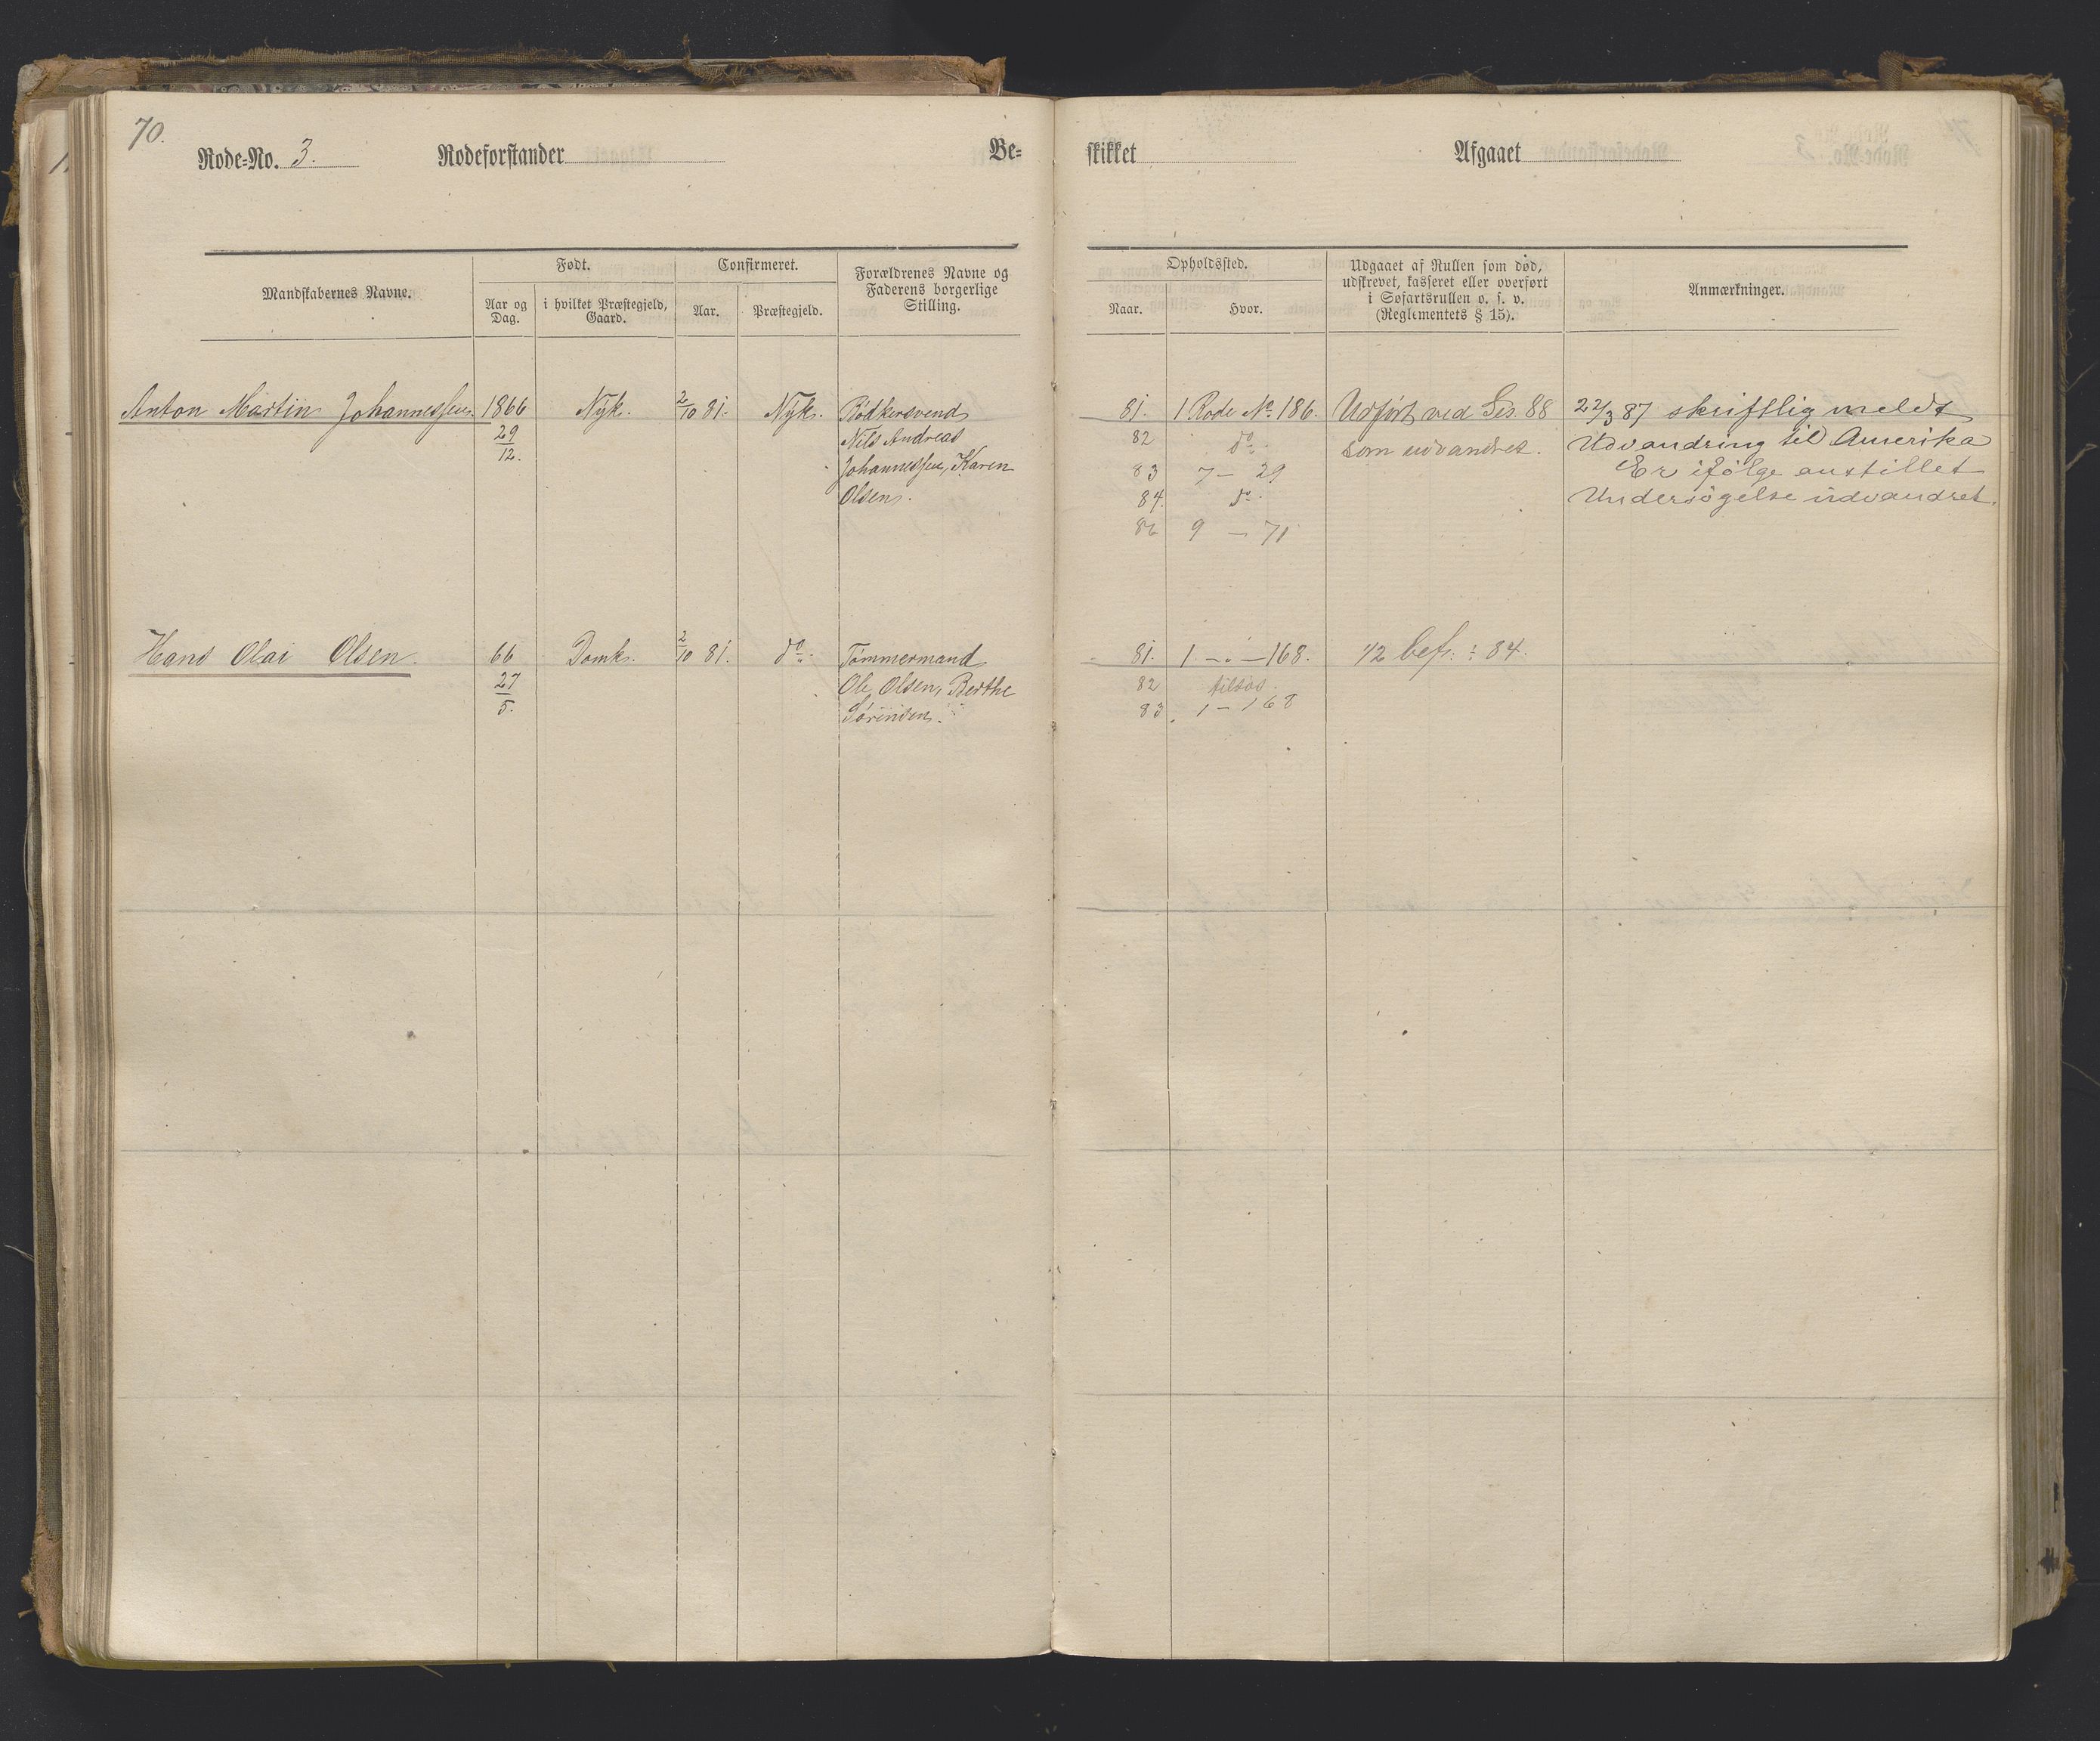 70.
Rode=No. 3. Rodeforstander Be=
skikket Afgaaet
Mandskabernes Navne.
Født.
Aar og Dag.
i hvilket Præstegjeld, Gaard.
Confirmeret.
Aar.
Præstegjeld.
Forældrenes Navne og
Faderens borgerlige
Stilling.
Opholdssted.
Naar.
Hvor.
Udgaaet af Rullen som død,
udskrevet, kasseret eller overført
i Søfartsrullen o. s. v.
(Reglementets § 15).
Anmærkninger.
Anton Martin Johannessen. 1866 Nyk. 2/10 81. Nyk. Bødkersvend
29/12. Nils Andreas
Johannessen, Karen
Olsen.
81. 1 Rode No. 186. Udført ved Ses. 88 22/3 87 skriftlig meldt
82 do. som udvandret. Udvandring til Amerika
83 7 — 29 Er ifølge anstillet
84. do. Undersøgelse udvandret.
86 9 — 71
Hans Olai Olsen. 66 Domk. 2/10 81. do. Tømmermand
27/5. Ole Olsen, Berthe
Sørensen.
81. 1 — " — 168. 42 bef. : 84.
82 tilsøs.
83. 1 — 168